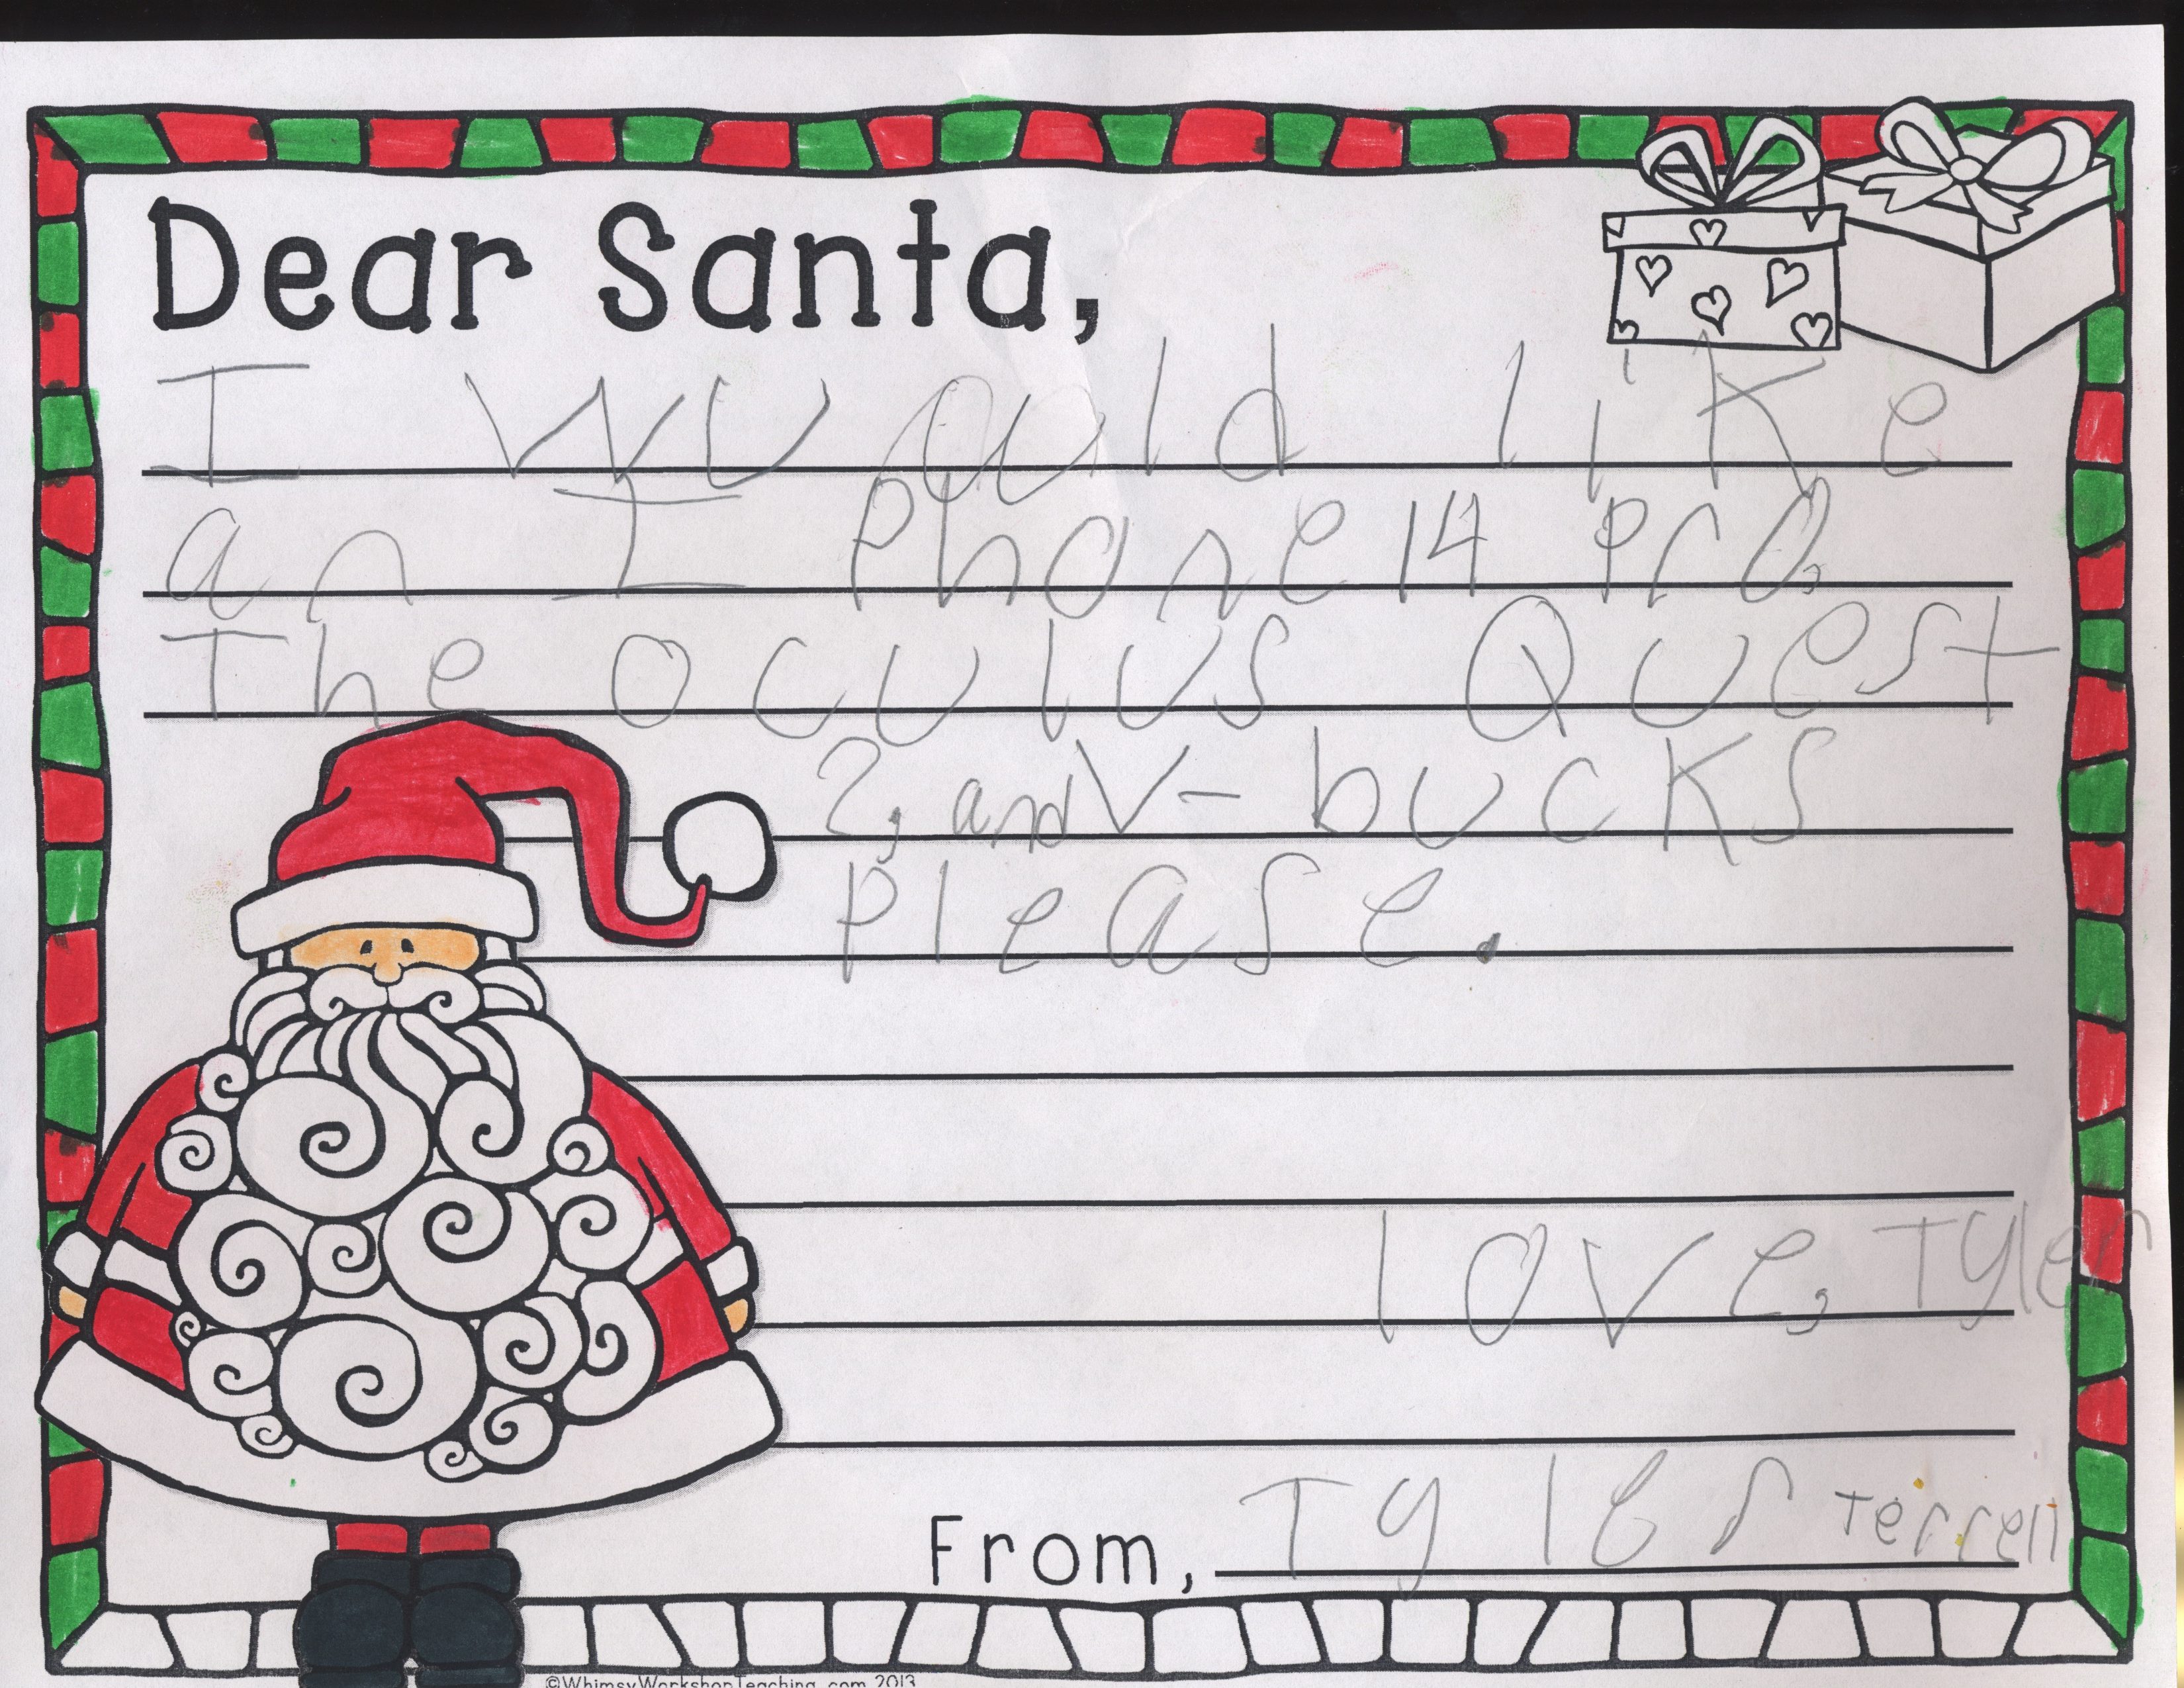 Dear Santa,
I wuould like
an I Phone 14 Pro,
The oculus Quest
2, and V-bucks
Please.
love, Tyler
From, Tyler Terrell
©WhimsyWorkshopTeaching.com 2013